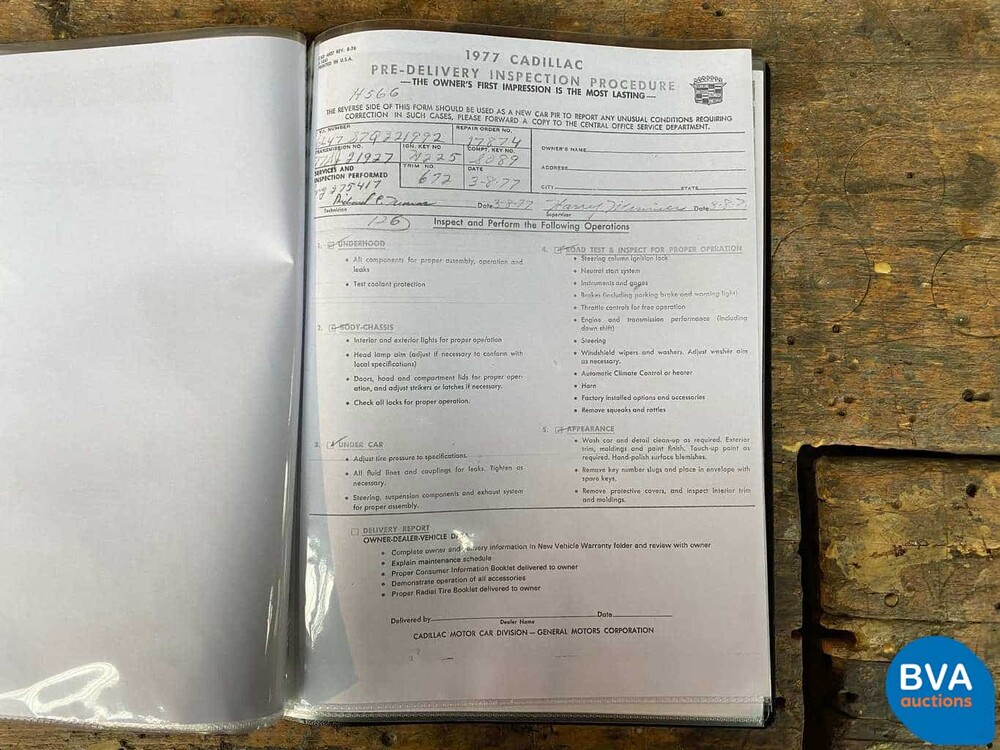 REV. 8-76
PRINTED IN U.S.A.
1977 CADILLAC
PRE-DELIVERY INSPECTION PROCEDURE
—THE OWNER'S FIRST IMPRESSION IS THE MOST LASTING—
H566
THE REVERSE SIDE OF THIS FORM SHOULD BE USED AS A NEW CAR PIR TO REPORT ANY UNUSUAL CONDITIONS REQUIRING
CORRECTION IN SUCH CASES, PLEASE FORWARD A COPY TO THE CENTRAL OFFICE SERVICE DEPARTMENT.
NUMBER
REPAIR ORDER NO.
17874
OWNER'S NAME
TRANSMISSION NO.
IGN. KEY NO.
COMPT. KEY NO.
8089
ADDRESS
SERVICES AND
INSPECTION PERFORMED
TRIM NO.
672
DATE
3-8-77
CITY STATE
275417
Technician
Date 3-8-77
Harry
Supervisor
Date
126
Inspect and Perform the Following Operations
1. UNDERHOOD
• All components for proper assembly, operation and
leaks
• Test coolant protection
2. BODY-CHASSIS
• Interior and exterior lights for proper operation
• Head lamp aim (adjust if necessary to conform with
local specifications)
• Doors, hood and compartment lids for proper oper-
ation, and adjust strikers or latches if necessary.
• Check all locks for proper operation.
3. UNDER CAR
• Adjust tire pressure to specifications.
• All fluid lines and couplings for leaks. Tighten as
necessary.
• Steering, suspension components and exhaust system
for proper assembly.
4. ROAD TEST & INSPECT FOR PROPER OPERATION
• Steering column ignition lock
• Neutral start system
• Instruments and gages
• Brakes (including parking brake and warning light)
• Throttle controls for free operation
• Engine and transmission performance (including
down shift)
• Steering
• Windshield wipers and washers. Adjust washer aim
as necessary.
• Automatic Climate Control or heater
• Horn
• Factory installed options and accessories
• Remove squeaks and rattles
5. APPEARANCE
• Wash car and detail clean-up as required. Exterior
trim, moldings and paint finish. Touch-up paint as
required. Hand-polish surface blemishes.
• Remove key number slugs and place in envelope with
spare keys.
• Remove protective covers, and inspect interior trim
and moldings.
DELIVERY REPORT
OWNER-DEALER-VEHICLE
• Complete owner and delivery information in New Vehicle Warranty folder and review with owner
• Explain maintenance schedule
• Proper Consumer Information Booklet delivered to owner
• Demonstrate operation of all accessories
• Proper Radial Tire Booklet delivered to owner
Delivered by Date
Dealer Name
CADILLAC MOTOR CAR DIVISION — GENERAL MOTORS CORPORATION
BVA
auctions